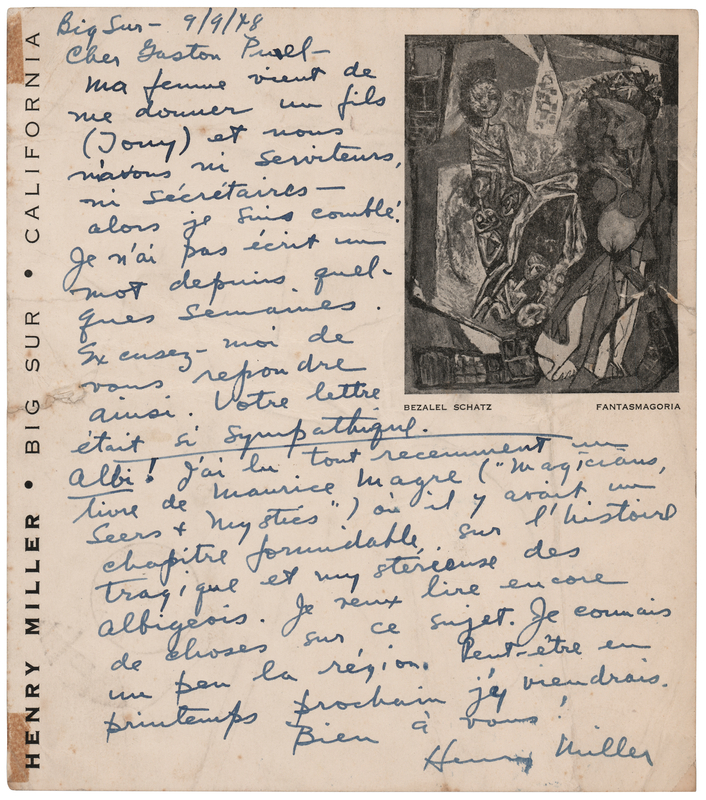 Big Sur - 9/9/48
Cher Gaston Puel -
Ma femme vient de
me donner un fils
(Tony) et nous
n'avons ni serviteurs,
ni sécrétaires -
alors je suis comblé!
Je n'ai pas écrit un
mot depuis quel-
ques semaines.
Excusez-moi de
vous repondre
ainsi. Votre lettre
était si sympathique.
Albi! J'ai lu tout recemment un
livre de Maurice Magre ("Magicians,
Seers & Mystics") où il y avait un
chapître formidable sur l'histoire
tragique et mystérieuse des
albigeois. Je veux lire encore
de choses sur ce sujet. Je connais
un peu la région. Peut-être en
printemps prochain j'y viendrais.
Bien à vous!
Henry Miller
BEZALEL SCHATZ
FANTASMAGORIA
HENRY MILLER • BIG SUR • CALIFORNIA